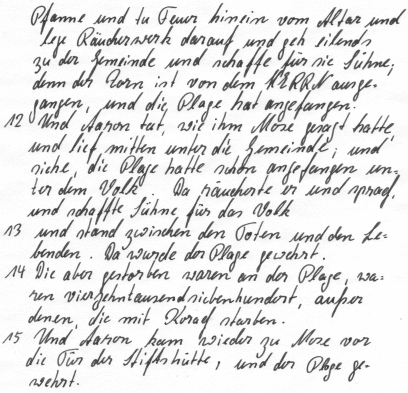 Pfanne und tu Feuer hinein vom Altar und
lege Räucherwerk darauf und geh eilends
zu der Gemeinde und schaffe für sie Sühne;
denn der Zorn ist von dem HERRN ausge-
gangen, und die Plage hat angefangen.
12 Und Aaron tat, wie ihm Mose gesagt hatte,
und lief mitten unter die Gemeinde; und
siehe, die Plage hatte schon angefangen un-
ter dem Volk. Da räucherte er und sprach,
und schaffte Sühne für das Volk
13 und stand zwischen den Toten und den Le-
benden. Da wurde der Plage gewehrt.
14 Die aber gestorben waren an der Plage, wa-
ren vierzehntausendsiebenhundert, außer
denen, die mit Korach starben.
15 Und Aaron kam wieder zu Mose vor
die Tür der Stiftshütte, und der Plage ge-
wehrt.